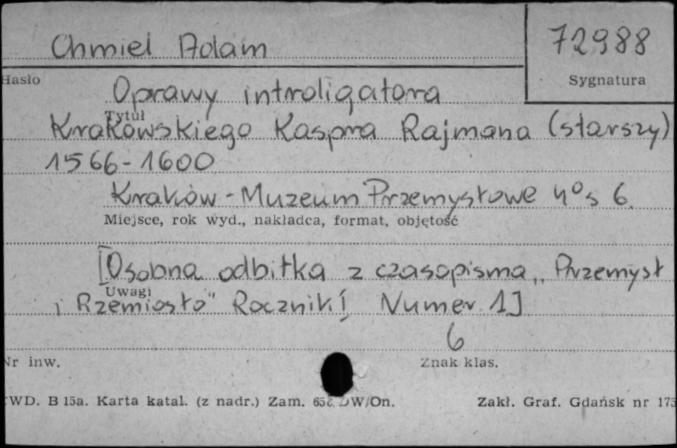 Chmiel Adam
72988
Hasło
Sygnatura
Oprawy introligatora
Tytuł
Krakowskiego Kaspra Rajmana (starszy)
1566-1600
Kraków - Muzeum Przemysłowe 4°s 6.
Miejsce, rok wyd., nakładca, format, objętość
[Osobna odbitka z czasopisma „Przemysł
Uwagi
i Rzemiosło" Rocznik I Numer 1]
6
Nr inw.
Znak klas.
WD. B 15a. Karta katal. (z nadr.) Zam. DW/On.
Zakł. Graf. Gdańsk nr 175